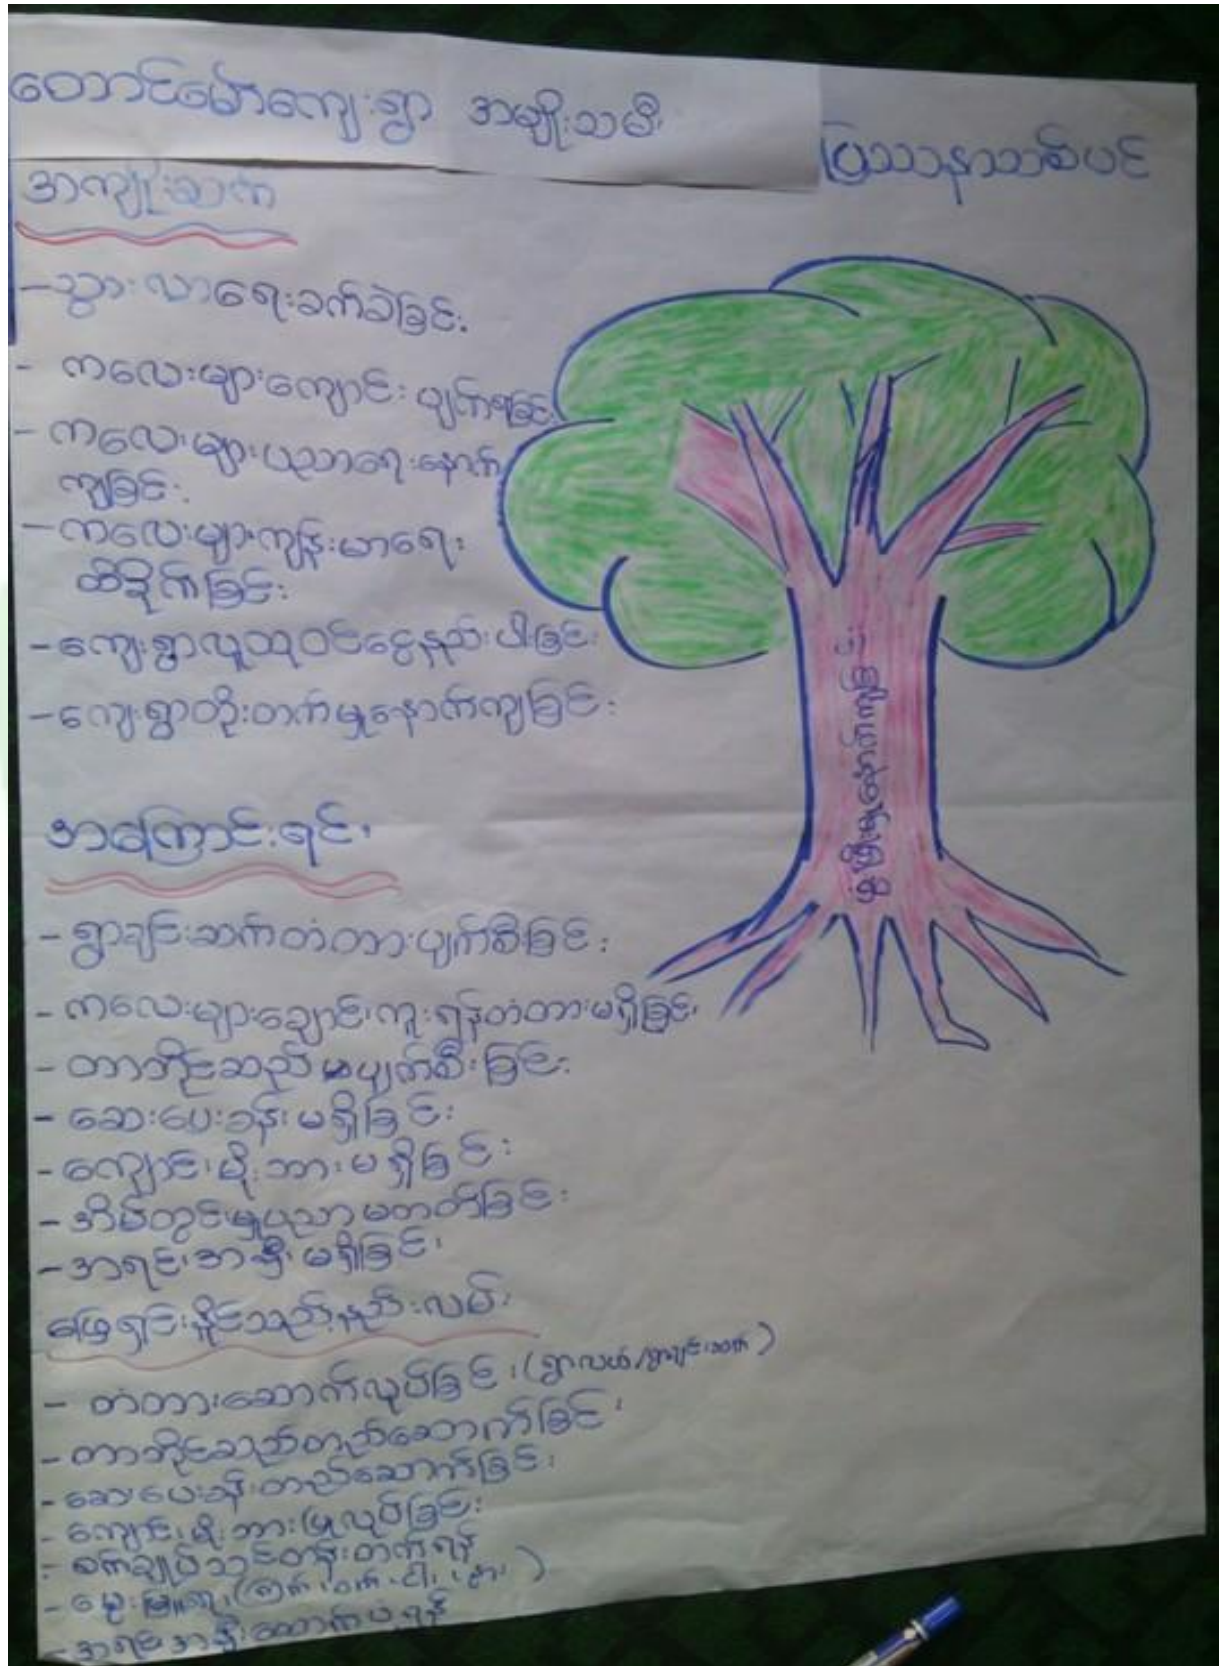 တောင်မော်ကျေးရွာ အမျိုးသမီး
ပြဿနာသစ်ပင်
အကျိုးဆက်
- သွားလာရေးခက်ခဲခြင်း
- ကလေးများကျောင်း ပျက်ရခြင်း
- ကလေးများပညာရေးနောက်
ကျခြင်း
- ကလေးများကျန်းမာရေး
ထိခိုက်ခြင်း
- ကျေးရွာလူထုဝင်ငွေနည်းပါးခြင်း
- ကျေးရွာတိုးတက်မှုနောက်ကျခြင်း
ဖွံ့ဖြိုးမှုနောက်ကျခြင်း
အကြောင်းရင်း
- ရွာချင်းဆက်တံတားပျက်စီးခြင်း
- ကလေးများချောင်းကူးရန်တံတားမရှိခြင်း
- တာဘိုင်ဆည် ပျက်စီးခြင်း
- ဆေးပေးခန်းမရှိခြင်း
- ကျောင်းမိုးဘားမရှိခြင်း
- အိမ်တွင်းမှုပညာမတတ်ခြင်း
- အရင်းအနှီးမရှိခြင်း
ဖြေရှင်းနိုင်သည့်နည်းလမ်း
- တံတားဆောက်လုပ်ခြင်း (ရွာလယ်/ရွာချင်းဆက်)
- တာဘိုင်ဆည်တည်ဆောက်ခြင်း
- ဆေးပေးခန်းတည်ဆောက်ခြင်း
- ကျောင်းမိုးဘားပြုလုပ်ခြင်း
- စက်ချုပ်သင်တန်းတက်ရန်
- မွေးမြူရေး (ကြက်၊ ဝက်၊ ငါး၊ နွား)
- အရင်းအနှီးထောက်ပံ့ရန်